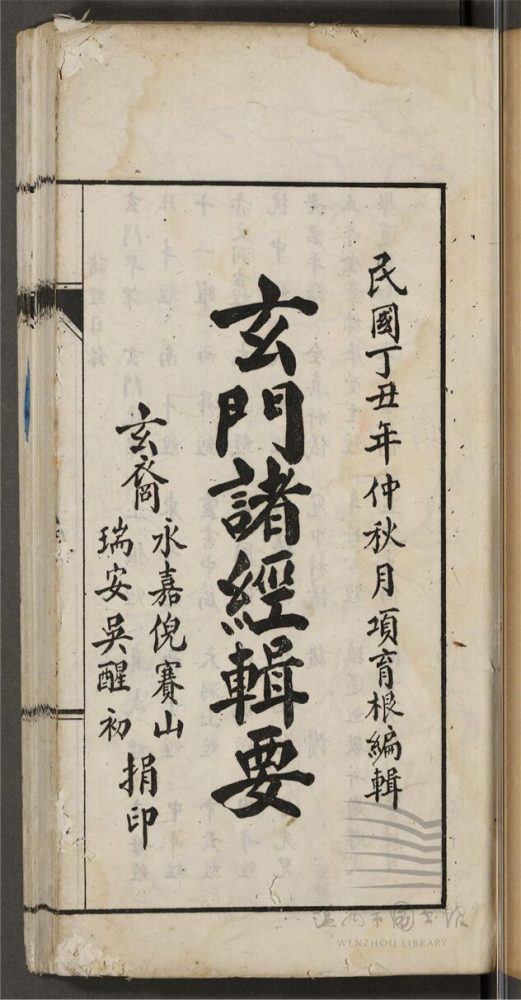 民國丁丑年仲秋月項育根編輯
玄門諸經輯要
玄裔
永嘉倪賽山
瑞安吳醒初
捐印
溫州市圖書館
WENZHOU LIBRARY